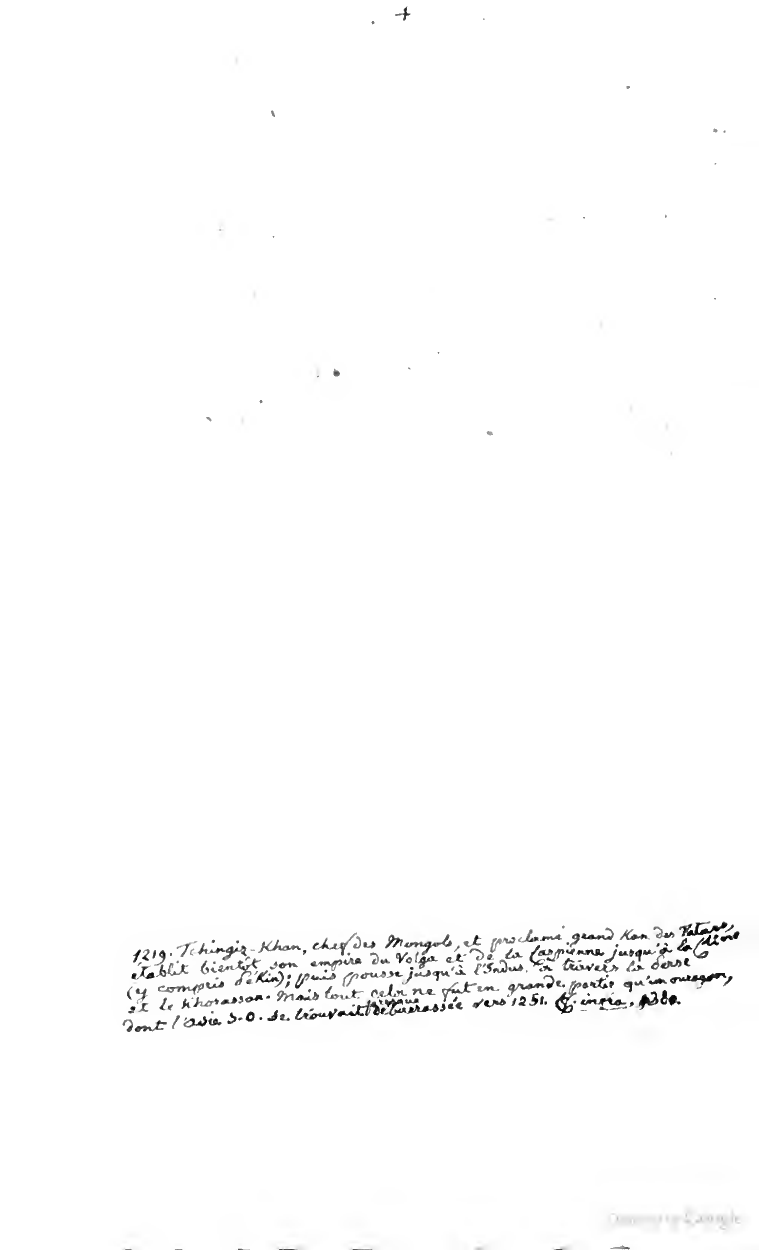 +
1219. Tchingiz-Khan, chef des Mongols, et proclamé grand Kan des Tatars,
établit bientôt son empire du Volga et de la Caspienne jusqu'à la Chine
(y compris Pékin); puis pousse jusqu'à l'Indus, à travers la Perse
et le Khorassan. Mais tout cela ne fut en grande partie qu'un ouragan,
dont l'Asie S-O. se trouvait presque débarrassée vers 1251. Cf. infra, 1380.
Google